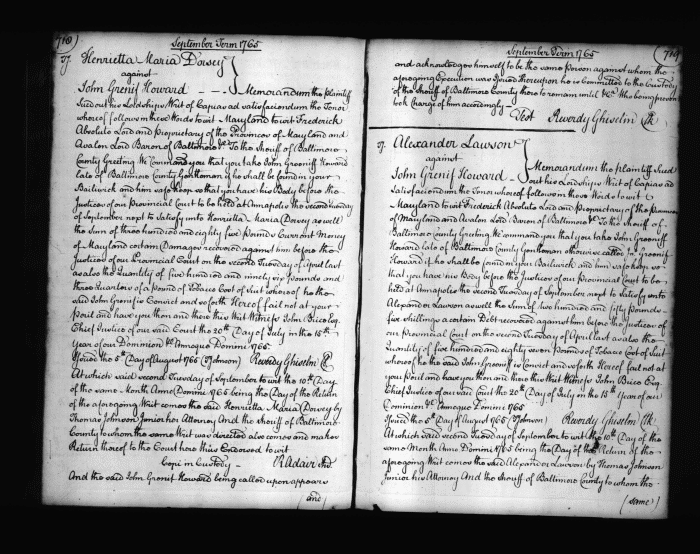 710
September Term 1765
37 Henrietta Maria Dorsey
against
John Greniff Howard - - - Memorandum the plaintiff
Sued out his Lordships Writ of Capias ad satisfaciendum the Tenor
whereof follows in these Words to wit Maryland to wit Frederick
Absolute Lord and Proprietary of the Provinces of Maryland and
Avalon Lord Baron of Baltimore &c. To the Sheriff of Baltimore
County Greeting We Command you that you take John Greeniff Howard
late of Baltimore County Gentleman if he shall be found in your
Bailiwick and him safe keep so that you have his Body before the
Justices of our Provincial Court to be held at Annapolis the second Tuesday
of September next to Satisfy unto Henrietta Maria Dorsey as well
the Sum of three hundred and eighty five pounds Current Money
of Maryland certain Damages recovered against him before the
Justices of our Provincial Court on the second Tuesday of April last
as also the Quantity of five hundred and ninety six pounds and
three Quarters of a pound of Tobacco Cost of Suit whereof he the
said John Greniff is Convict and so forth Hereof fail not at your
Peril and have you then and there this Writ Witness John Brice Esq.
Chief Justice of our said Court the 20th Day of July in the 15th
Year of our Dominion &c Annoque Domini 1765.
Issued the 5th Day of August 1765 (T Johnson) Reverdy Ghiselin Clk
At which said second Tuesday of September to wit the 10th Day
of the same Month Anno Domini 1765 being the Day of the Return
of the aforegoing Writ comes the said Henrietta Maria Dorsey by
Thomas Johnson Junior her Attorney And the Sheriff of Baltimore
County to whom the same Writ was directed also comes and makes
Return thereof to the Court here thus Endorsed to wit
Cepi in Custody - R Adair Shf.
And the said John Greniff Howard being called upon appears
(and)
September Term 1765
711
and acknowledges himself to be the same person against whom the
aforegoing Execution was Issued Thereupon he is Committed to the Custody
of the Sheriff of Baltimore County there to remain until &c. Who being present
took Charge of him accordingly
Test Reverdy Ghiselin Clk
37. Alexander Lawson
against
John Greniff Howard Memorandum the Plaintiff Sued
out his Lordships Writ of Capias ad
Satisfaciendum the Tenor whereof follows in these Words to wit
Maryland to wit Frederick Absolute Lord and Proprietary of the Provinces
of Maryland and Avalon Lord Baron of Baltimore &c. To the Sheriff of
Baltimore County Greeting We command you that you take John Greeniff
Howard late of Baltimore County Gentleman otherwise called Jn. Greeniff
Howard if he shall be found in your Bailiwick and him safe keep so
that you have his Body before the Justices of our Provincial Court to be
held at Annapolis the second Tuesday of September next to Satisfy unto
Alexander Lawson as well the Sum of two hundred and fifty Pounds
five shillings a certain Debt recovered against him before the Justices of
our Provincial Court on the second Tuesday of April last as also the
Quantity of five hundred and eighty seven Pounds of Tobacco Cost of Suit
whereof he the said John Greeniff is Convict and so forth Hereof fail not at
your Peril and have you then and there this Writ Witness John Brice Esq.
Chief Justice of our said Court the 20th Day of July in the 15th Year of our
Dominion &c. Annoque Domini 1765
Issued the 5th Day of August 1765 (T Johnson) Reverdy Ghiselin Clk
At which said second Tuesday of September to wit the 10th Day of the
same Month Anno Domini 1765 being the Day of the Return of the
aforegoing Writ comes the said Alexander Lawson by Thomas Johnson
Junior his Attorney And the Sheriff of Baltimore County to whom the
(same)